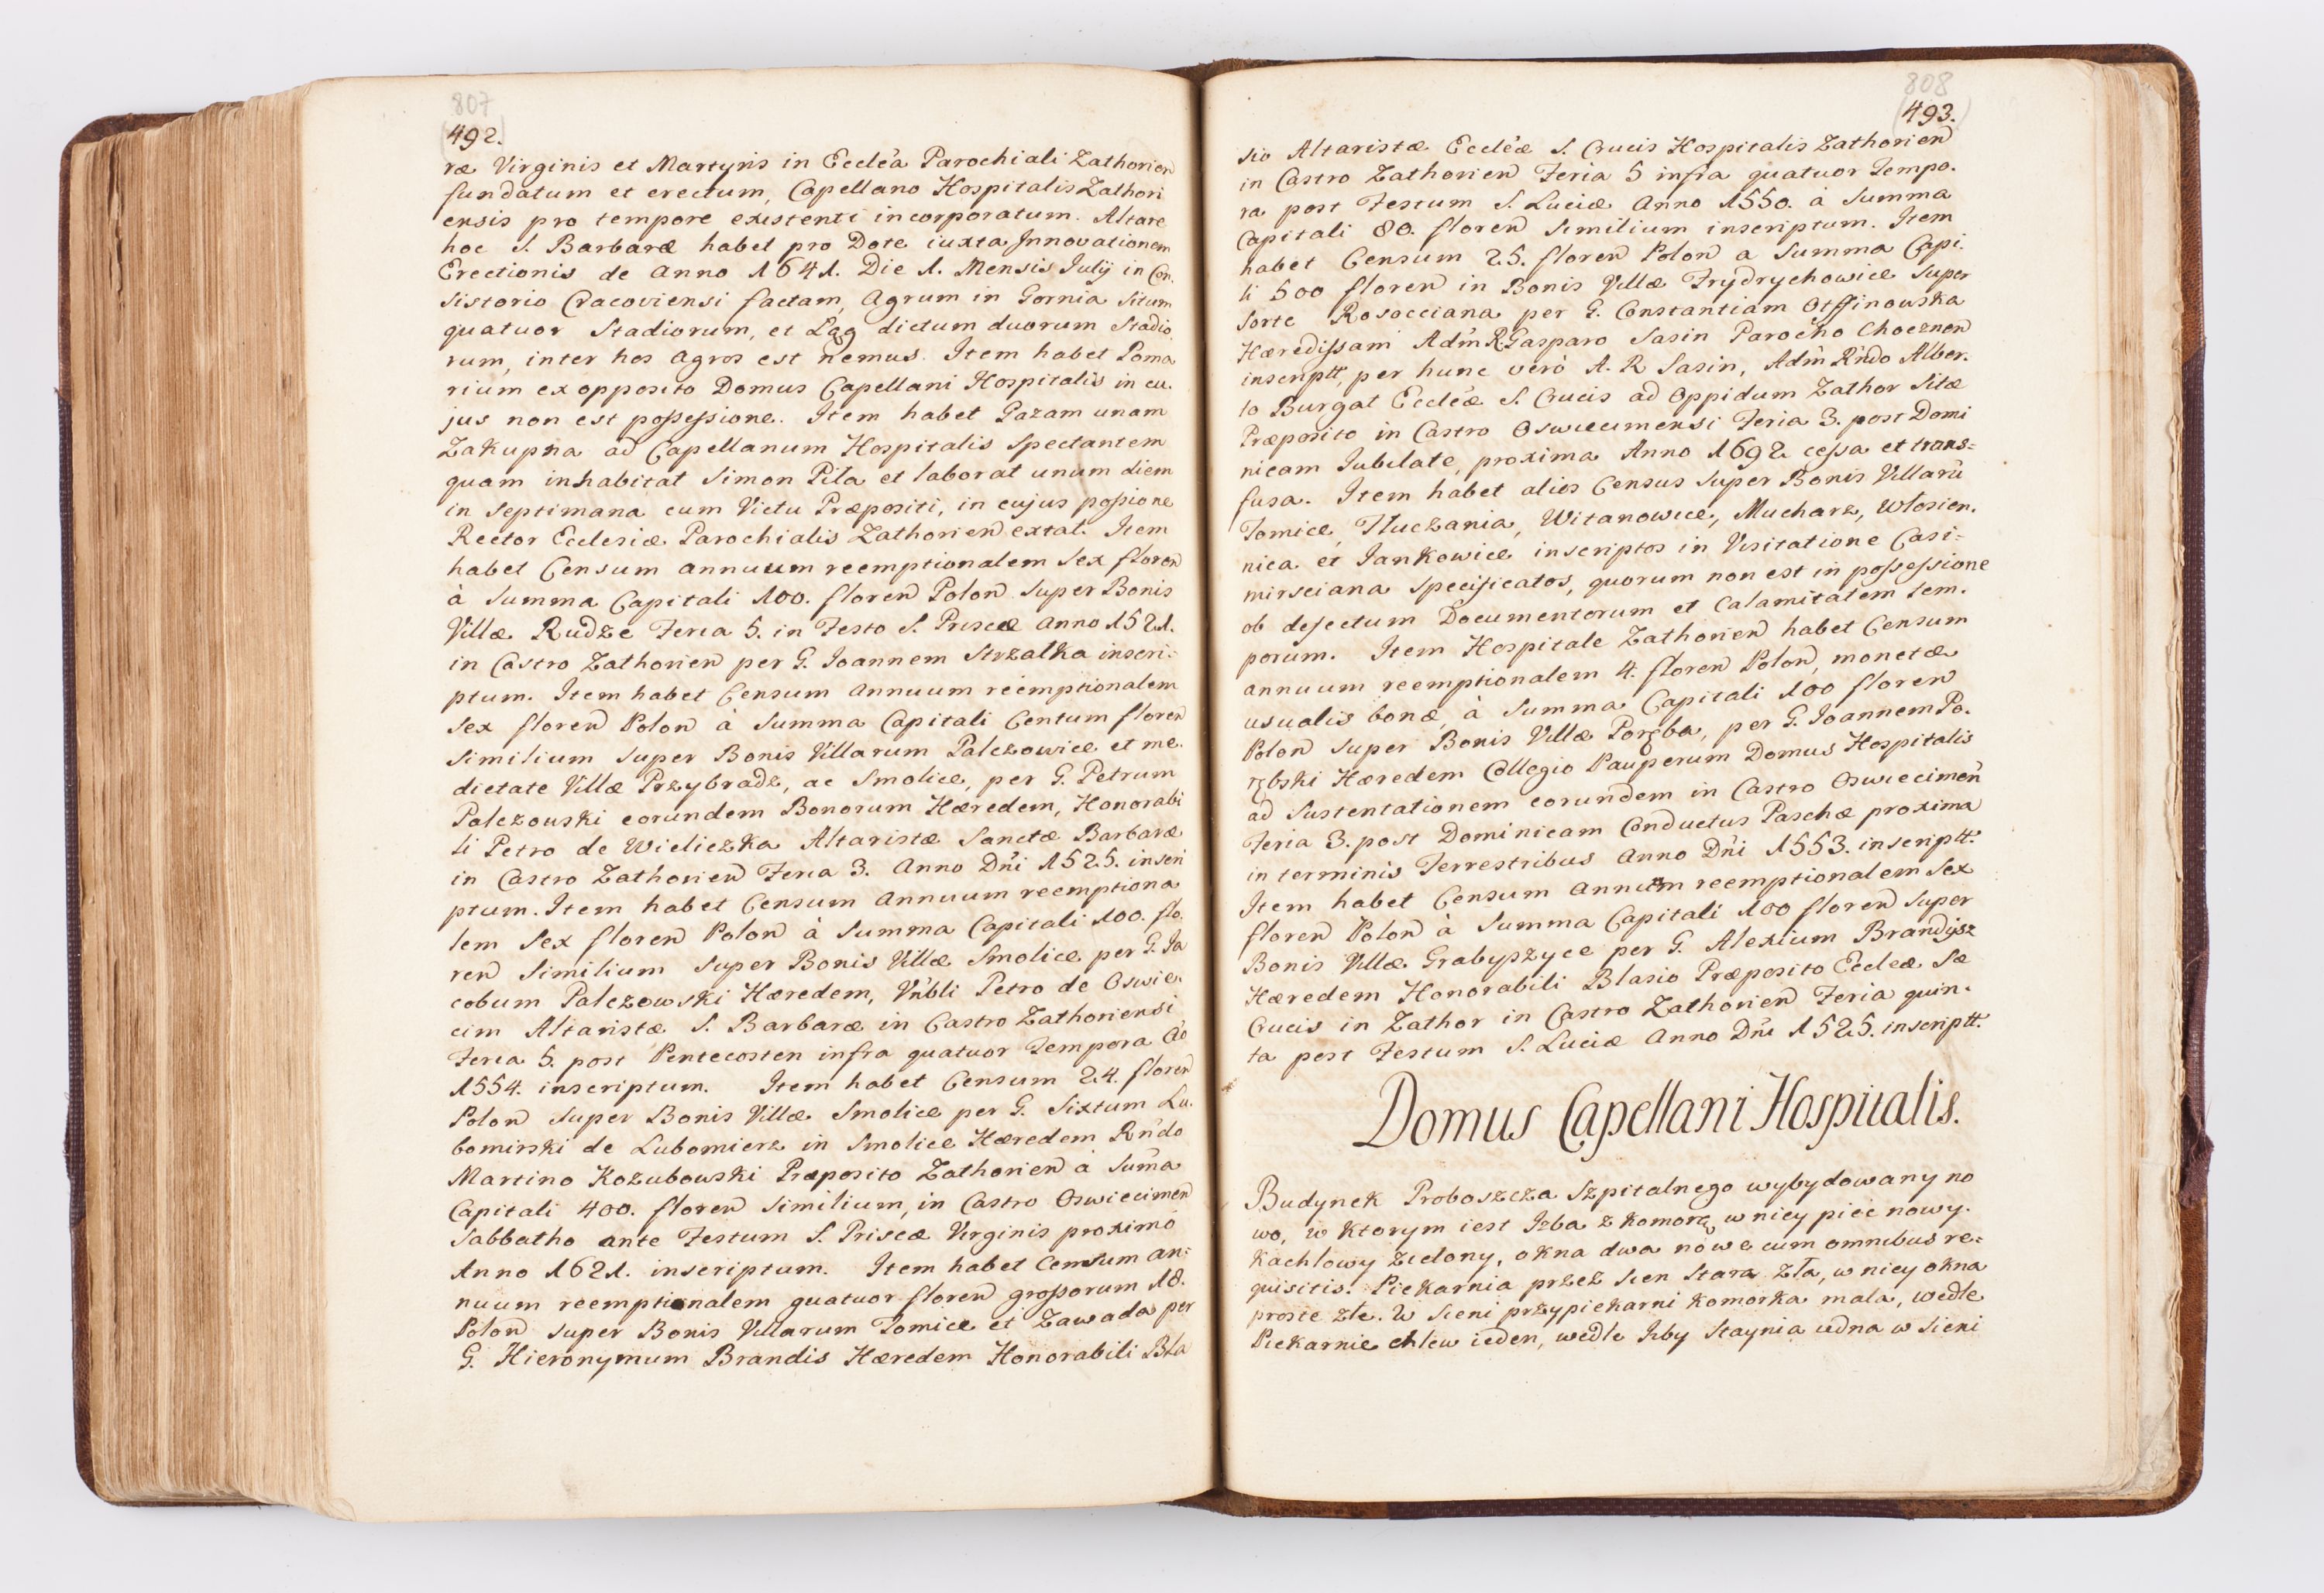 807
492.
ræ Virginis et Martyris in Eccleâ Parochiali Zathorien
fundatum et erectum, Capellano Hospitalis Zathori
ensis pro tempore existenti incorporatum. Altare
hoc S. Barbaræ habet pro Dote iuxta Innovationem
Erectionis de Anno 1641. Die 1. Mensis Julij in Con.
sistorio Cracoviensi factam, Agrum in Gornia situm
quatuor Stadiorum, et Łąg dictum duorum Stadio
rum, inter hos Agros est nemus. Item habet Poma
rium ex opposito Domus Capellani Hospitalis in cu.
jus non est possessione. Item habet Gazam unam
Zakupna ad Capellanum Hospitalis Spectantem
quam inhabitat Simon Pila et laborat unum diem
in Septimana cum Victu Præpositi, in cujus possione
Rector Ecclesiæ Parochialis Zathorien extat. Item
habet Censum annuum reemptionalem Sex floren
à Summa Capitali 100. floren Polon Super Bonis
Villæ Rudze Feria 5. in Festo S. Priscæ Anno 1521.
in Castro Zathorien per G. Joannem Strzalka inscri=
ptum. Item habet Censum Annuum reemptionalem
Sex floren Polon à Summa Capitali Centum floren
Similium Super Bonis Villarum Palczowice et me.
dietate Villæ Przybradz, ac Smolice, per G. Petrum
Palczowski eorundem Bonorum Hæredem, Honorabi
li Petro de Wieliczka Altaristæ Sanctæ Barbaræ
in Castro Zathorien Feria 3. Anno Dni 1525. inscri
ptum. Item habet Censum Annuum reemptiona
lem Sex floren Polon à Summa Capitali 100. flo.
ren Similium Super Bonis Villæ Smolice per G. Ja
cobum Palczowski Hæredem, Vnbli Petro de Oswie.
cim Altaristæ S. Barbaræ in Castro Zathoriensi
Feria 5. post Pentecosten infra quatuor Tempora Ao
1554. inscriptum. Item habet Censum 24. floren
Polon Super Bonis Villæ Smolice per G. Sixtum Lu.
bomirski de Lubomierz in Smolice Hæredem Rndo
Martino Kozubowski Præposito Zathorien à Suma
Capitali 400. floren Similium, in Castro Oswiecimen
Sabbatho ante Festum S. Priscæ Virginis proximo
Anno 1621. inscriptum. Item habet Censum an=
nuum reemptionalem quatuor floren grossorum 18.
Polon Super Bonis Villarum Tomice et Zawada per
G. Hieronymum Brandis Hæredem Honorabili Bla
808
493.
sio Altaristæ Eccleæ S. Crucis Hospitalis Zathorien
in Castro Zathorien Feria 5 infra quatuor Tempo.
ra post Festum S. Luciæ Anno 1550. à Summa
Capitali 80. floren Similium inscriptum. Item
habet Censum 25. floren Polon a Summa Capi.
li 500 floren in Bonis Villæ Frydrychowice Super
Sorte Rosocciana per G. Constantiam Otffinowska
Hæredissam Adm R. Gasparo Sasin Parocho Choeznen
inscriptt, per hunc verò A. R Sasin, Adm Rndo Alber.
to Burgat Eccleæ S. Crucis ad Oppidum Zathor Sitæ
Præposito in Castro Oswiecimensi Feria 3. post Domi
nicam Jubilate, proxima Anno 1692 cessa et trans=
fusa. Item habet alios Census Super Bonis Villarũ
Tomice, Tłuczania, Witanowice, Mucharz, Włosien.
nica et Jankowice inscriptos in Visitatione Casi=
mirsciana Specificatos, quorum non est in possessione
ob defectum Documentorum et Calamitatem tem.
porum. Item Hospitale Zathorien habet Censum
annuum reemptionalem 4. floren Polon, monetæ
usualis bonæ, à Summa Capitali 100 floren
Polon Super Bonis Villæ Poręba, per G. Joannem Po.
rębski Hæredem Collegio Pauperum Domus Hospitalis
ad Sustentationem eorundem in Castro Oswiecimen
Feria 3. post Dominicam Conductus Paschæ proxima
in terminis Terrestribus Anno Dni 1553. inscriptt.
Item habet Censum Annuum reemptionalem Sex
floren Polon à Summa Capitali 100 floren Super
Bonis Villæ Grabyszyce per G. Alexium Brandysz
Hæredem Honorabili Blasio Præposito Eccleæ Sæ
Crucis in Zathor in Castro Zathorien Feria quin.
ta post Festum S. Luciæ Anno Dni 1525. inscriptt.
Domus Capellani Hospitalis.
Budynek Proboszcza Szpitalnego wybydowany no
wo, w ktorym iest Izba z komorą, w niey piec nowy.
kachlowy zielony, okna dwa nowe cum omnibus re=
quisitis. Piekarnia przez sien Stara zła, w niey okna
proste złe. W sieni przy piekarni komorka mala, wedle
Piekarnie chlew ieden, wedle Izby Staynia iedna w Sieni